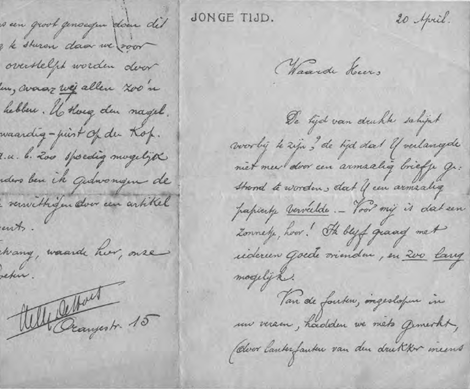 een groot genoegen doen dit
te sturen daar we zoor
overstelpt worden door
waar wij allen zoo'n
hebben. U sloeg den nagel
waardig-juist op den kop.
a.u.b. zoo spoedig mogelijk
nders ben ik gedwongen de
verwittigen door een artikel
waarde heer, onze
oeten.
Oranjestr. 15
JONGE TIJD.
20 April.
Waarde Heer,
De tijd van drukte schijnt
voorbij te zijn? de tijd dat U verlangde
niet meer door een armzalig briefje ge-
stoord te worden, dat U een armzalig
papiertje verveelde. — Voor mij is dat een
zonnetje, hoor! Ik blijf graag met
iedereen goede vrinden, en zoo lang
mogelijk.
Van de fouten, ingeslopen in
uw verzen, hadden we niets gemerkt,
(door lanterfanten van den drukker